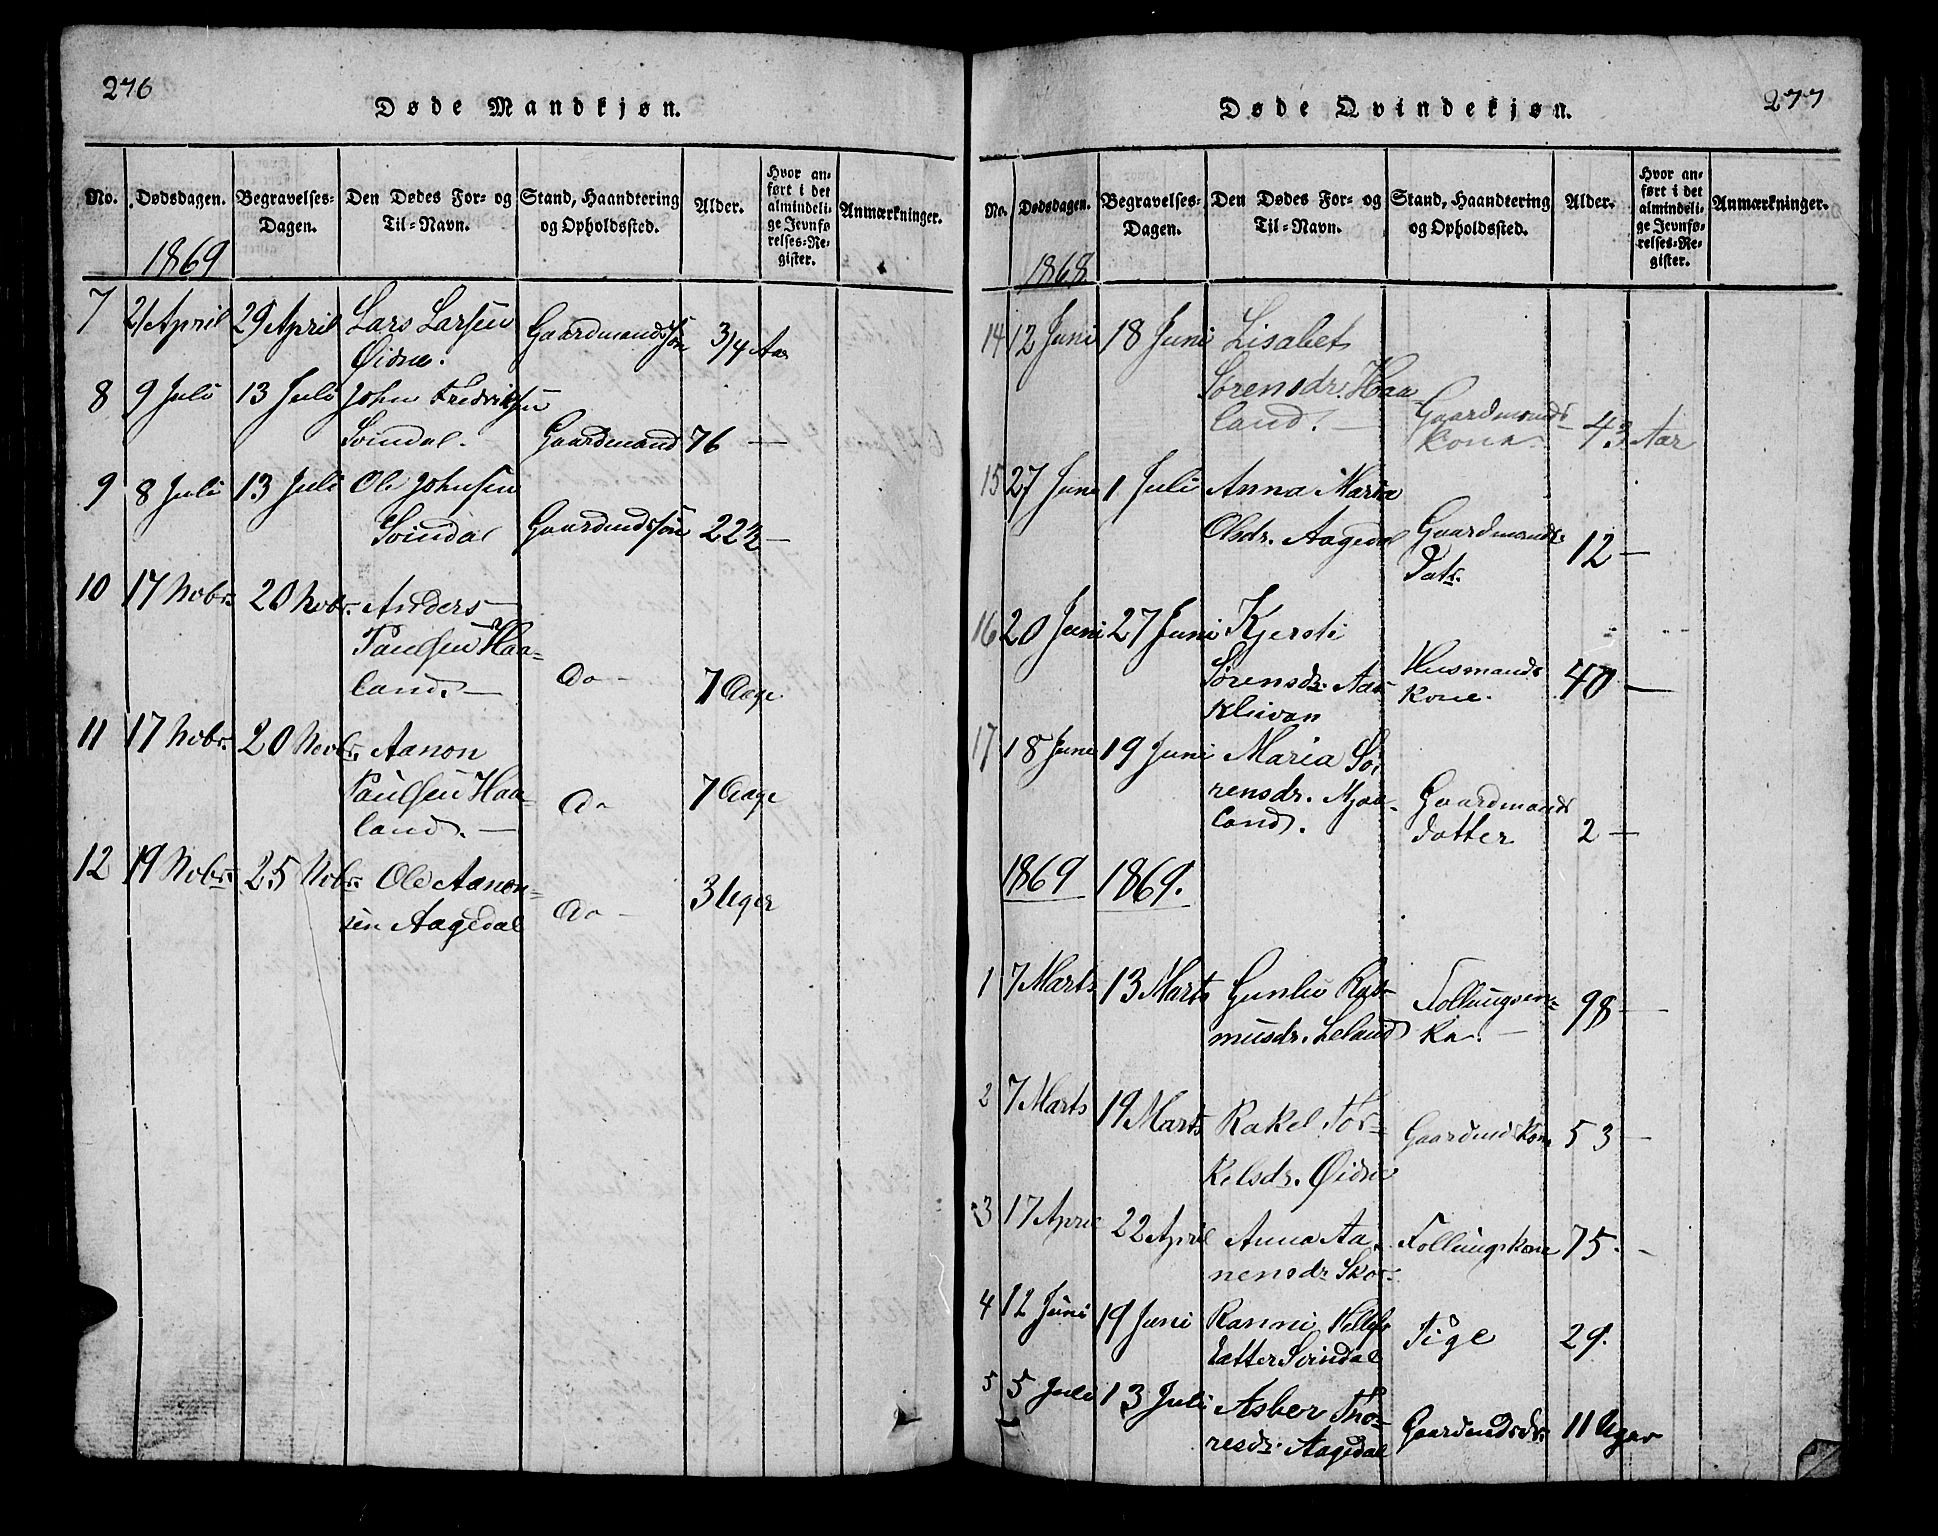 276
Døde Mandkjøn.
No. Dødsdagen. Begravelses-Dagen. Den Dødes For- og Til-Navn. Stand, Haandtering og Opholdssted. Alder. Hvor anført i det almindelige Jevnførelses-Register. Anmærkninger.
1869
7 21 April 29 April Lars Larsen Gaardmandssøn 3/4 Aar
Øidne.
8 9 Juli 13 Juli John Fredriksen
Svindal. Gaardmand 76 —
9 8 Juli 13 Juli Ole Johnsen
Svindal Gaardmdssøn 22½ —
10 17 Nobr. 20 Nobr. Anders
Paulsen Haa-
land. — do — 7 Dage
11 17 Nobr. 20 Novbr. Aanon
Paulsen Haa-
land. — do 7 Dage
12 19 Nobr. 25 Nobr. Ole Aanon-
sen Aagedal do — 3 Uger
277
Døde Qvindekjøn.
No. Dødsdagen. Begravelses-Dagen. Den Dødes For- og Til-Navn. Stand, Haandtering og Opholdssted. Alder. Hvor anført i det almindelige Jevnførelses-Register. Anmærkninger.
1868
14 12 Juni 18 Juni Lisabet
Sørensdr. Haa-
land. — Gaardmands-
kona. 43 Aar
15 27 Juni 1 Juli Anna Maria
Olsdr. Aagedal Gaardmands-
Datr. 12 —
16 20 Juni 27 Juni Kjersti
Sørensdr. Aas- Husmands
kleivan Kone. 40 —
17 18 Juni 19 Juni Maria Sø-
rensdr. Mjaa- Gaardmands
land. datter 2 —
1869 1869.
1 7 Marts 13 Marts Gunlu Ras-
musdr. Leland Follungsen-
ka. — 98 —
2 7 Marts 19 Marts Rakel Tor-
kelsdr. Øidne Gaardmdskone 53 —
3 17 April 22 April Anna Aa-
nensdr. Skor- Follungskone 75. —
4 12 Juni 19 Juni Ranni
datter Svindal Pige 29.
5 5 Juli 13 Juli Asber Tho-
resdr. Aagedal Gaardmdsdr. 11 Uger